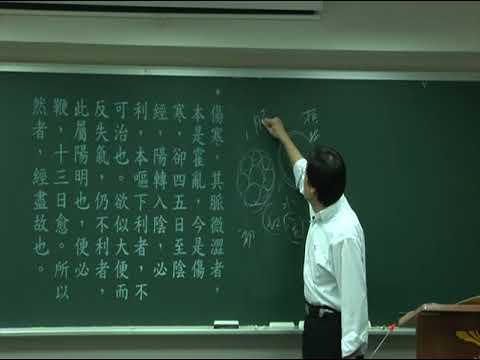 傷寒，其脈微澀者，
本是霍亂，今是傷
寒，卻四五日至陰
經，陽轉入陰，必
利，本嘔下利者，不
可治也。欲似大便而
反失氣，仍不利者，
此屬陽明也，便必
鞕，十三日愈。所以
然者，經盡故也。